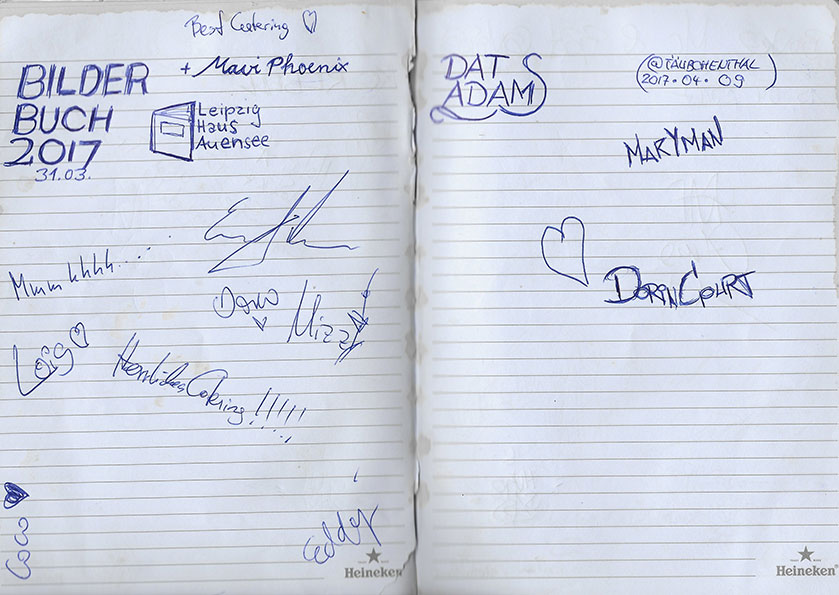 Best Catering
+ Mavi Phoenix
BILDER
BUCH
2017
31.03.
Leipzig
Haus
Auensee
Mmmhhhh.....
Danke
Mizzy
Löig
Herrliches Catering!!!!!
COCO
eddy
Heineken
DAT
ADAM
(@TÄUBCHENTHAL
2017.04.09)
MARYMAN
DORIN COURT
Heineken